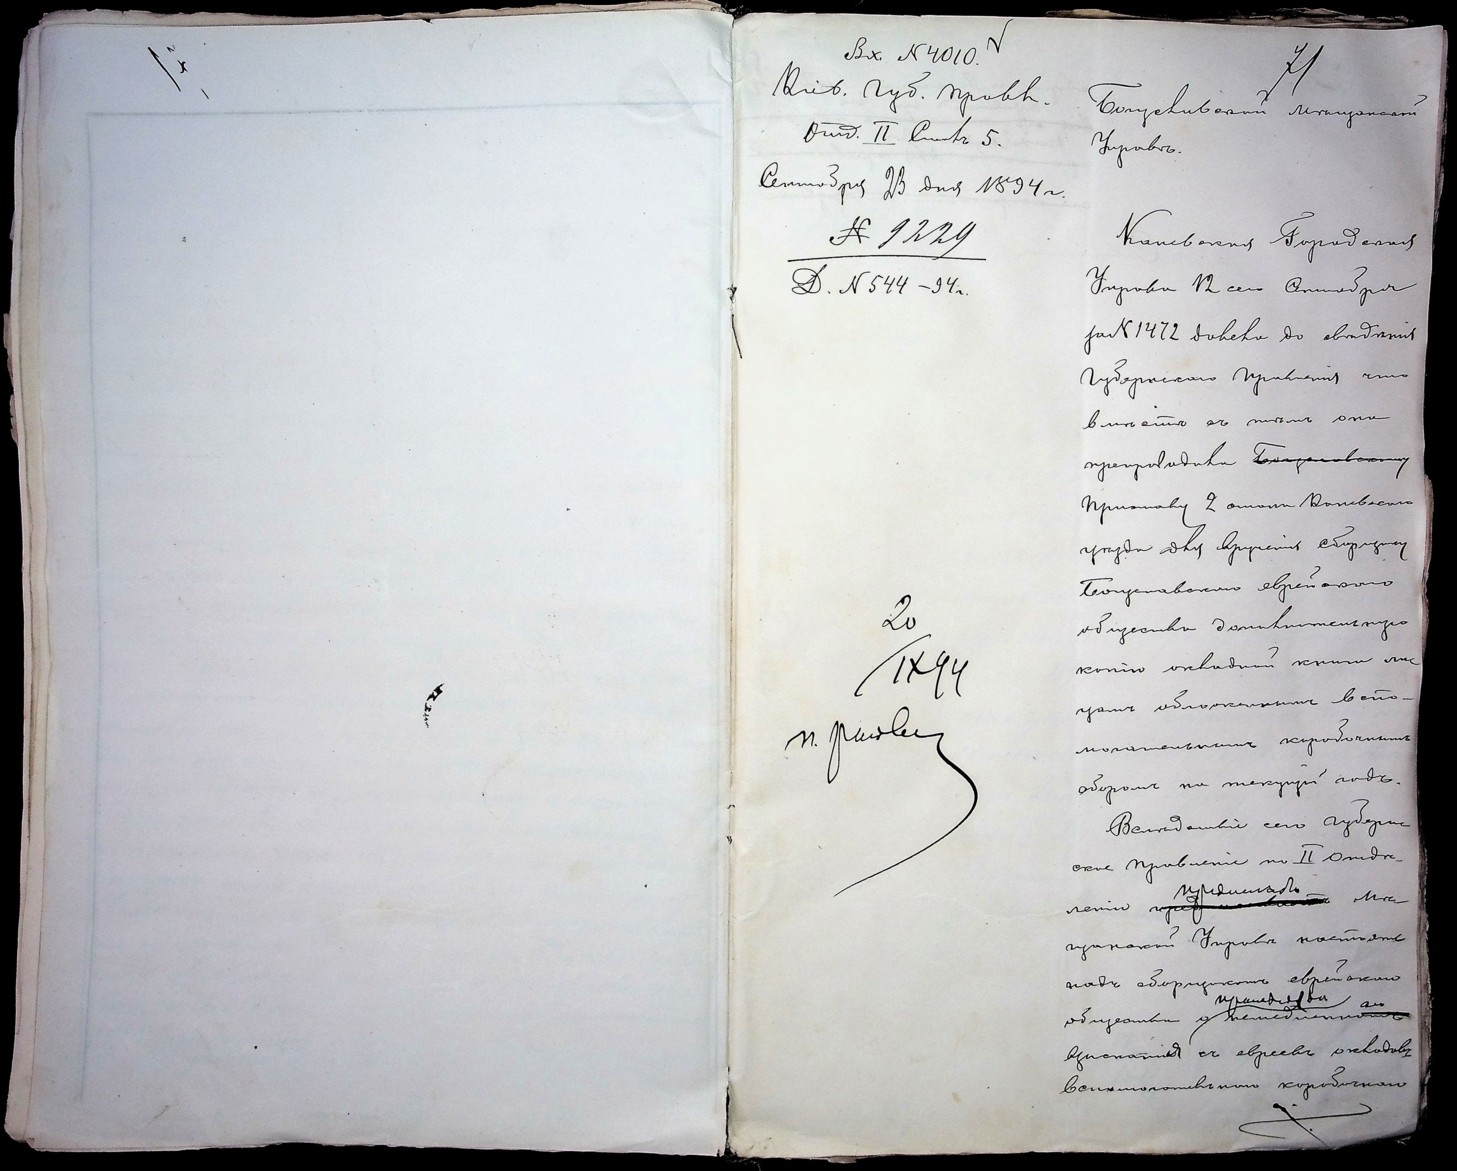 71
Вх. N 4010.
Кіев. Губ. Правл.
Отд. II Столъ 5.
Сентября 23 дня 1894 г.
№ 9229
Д. N 544 – 94 г.
20
IX 94
Богуславской Мѣщанской
Управѣ.
Каневская Городская
Управа 12 сего Сентября
за N 1472 донесла до свѣдѣнія
Губернскаго Правленія что
вмѣстѣ съ тѣмъ она
препроводила Богуславскому
Приставу 2 стана Каневскаго
уѣзда для врученія сборщику
Богуславскаго еврейскаго
общества дополнительную
копію окладной книги ли
цамъ обложеннымъ вспо-
могательнымъ коробочнымъ
сборомъ на текущій годъ.
Вслѣдствіе сего Губерн
ское Правленіе по II Отдѣ-
ленію предписываетъ Мѣ-
щанской Управѣ настоять
надъ сборщикомъ еврейскаго
общества о немедленномъ
взысканія съ евреевъ окладовъ
вспомогательнаго коробочнаго